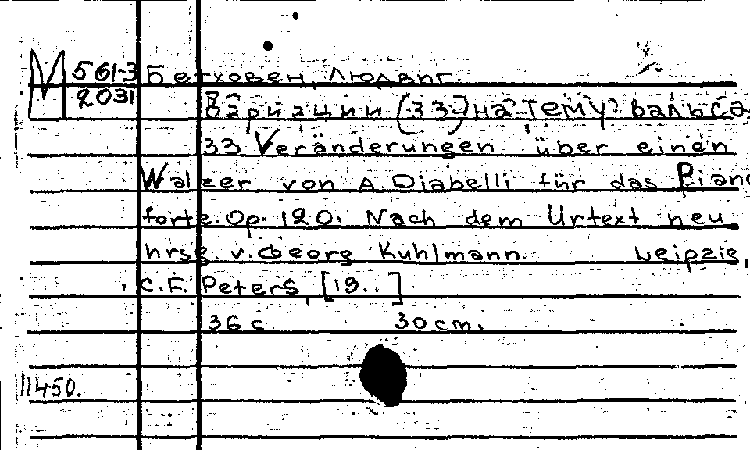 М 561-3 Бетховен, Людвиг
2031 Вариации (33) на тему вальса
33 Veränderungen über einen
Walzer von A. Diabelli für das Piano
forte. Op. 120. Nach dem Urtext neu
hrsg v. Georg Kuhlmann. Leipzig,
C.F. Peters, [19..]
36 с 30 cm.
11450.